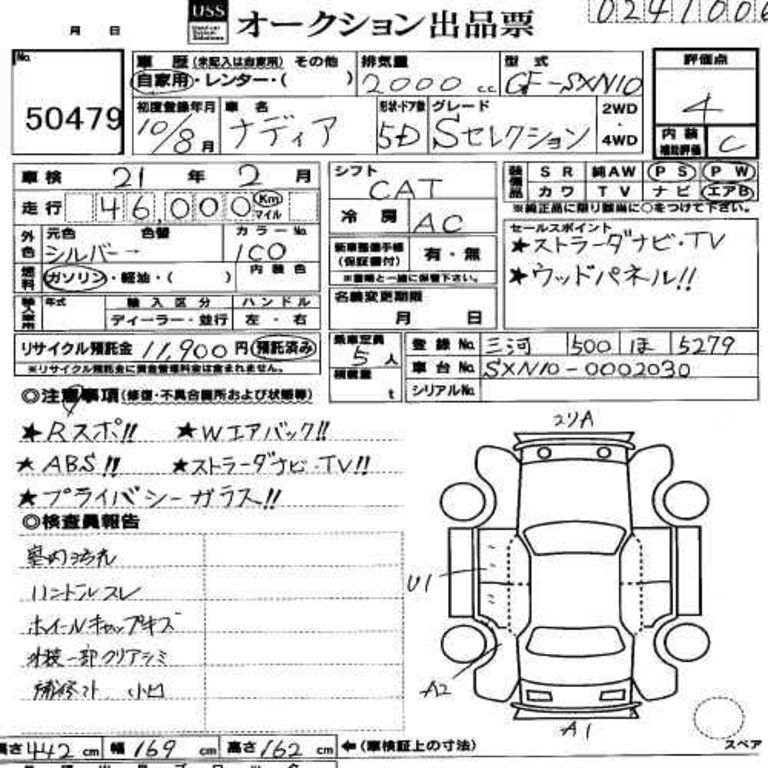 USS オークション出品票
月 日
No. 50479
車歴 (未記入は自家用) その他
自家用・レンター・( )
排気量 2000 cc
型式 GF-SXN10
評価点 4
内装補助評価 C
初度登録年月 10/8月
車名 ナディア
形状・ドア数 5D
グレード Sセレクション
2WD・4WD
車検 21年 2月
走行 46,000 Km マイル
外色 元色 シルバー 色替
カラーNo. 1C0
燃料 ガソリン・軽油・( )
内装色
年式 輸入区分 ハンドル
ディーラー・並行 左・右
リサイクル預託金 11,900円 預託済み
※リサイクル預託金に資金管理料金は含まれません。
シフト CAT
冷房 AC
新車整備手帳(保証書付) 有・無
※書類と一緒に保管下さい。
名義変更期限
月 日
乗車定員 5人
積載量 t
装備品 SR 純AW PS PW
カワ TV ナビ エアB
※純正品に限り該当に○をつけて下さい。
セールスポイント
★ストラーダナビ・TV
★ウッドパネル!!
登録No. 三河 500 ほ 5279
車台No. SXN10-0002030
シリアルNo.
◎注意事項(修復・不具合箇所および状態等)
★Rスポ!! ★Wエアバック!!
★ABS!! ★ストラーダナビ・TV!!
★プライバシーガラス!!
◎検査員報告
ハンドルスレ
ホイールキャップキズ
外装一部クリアシミ
U1
A2
A1
スペア
長さ442cm 幅169cm 高さ162cm ←(車検証上の寸法)